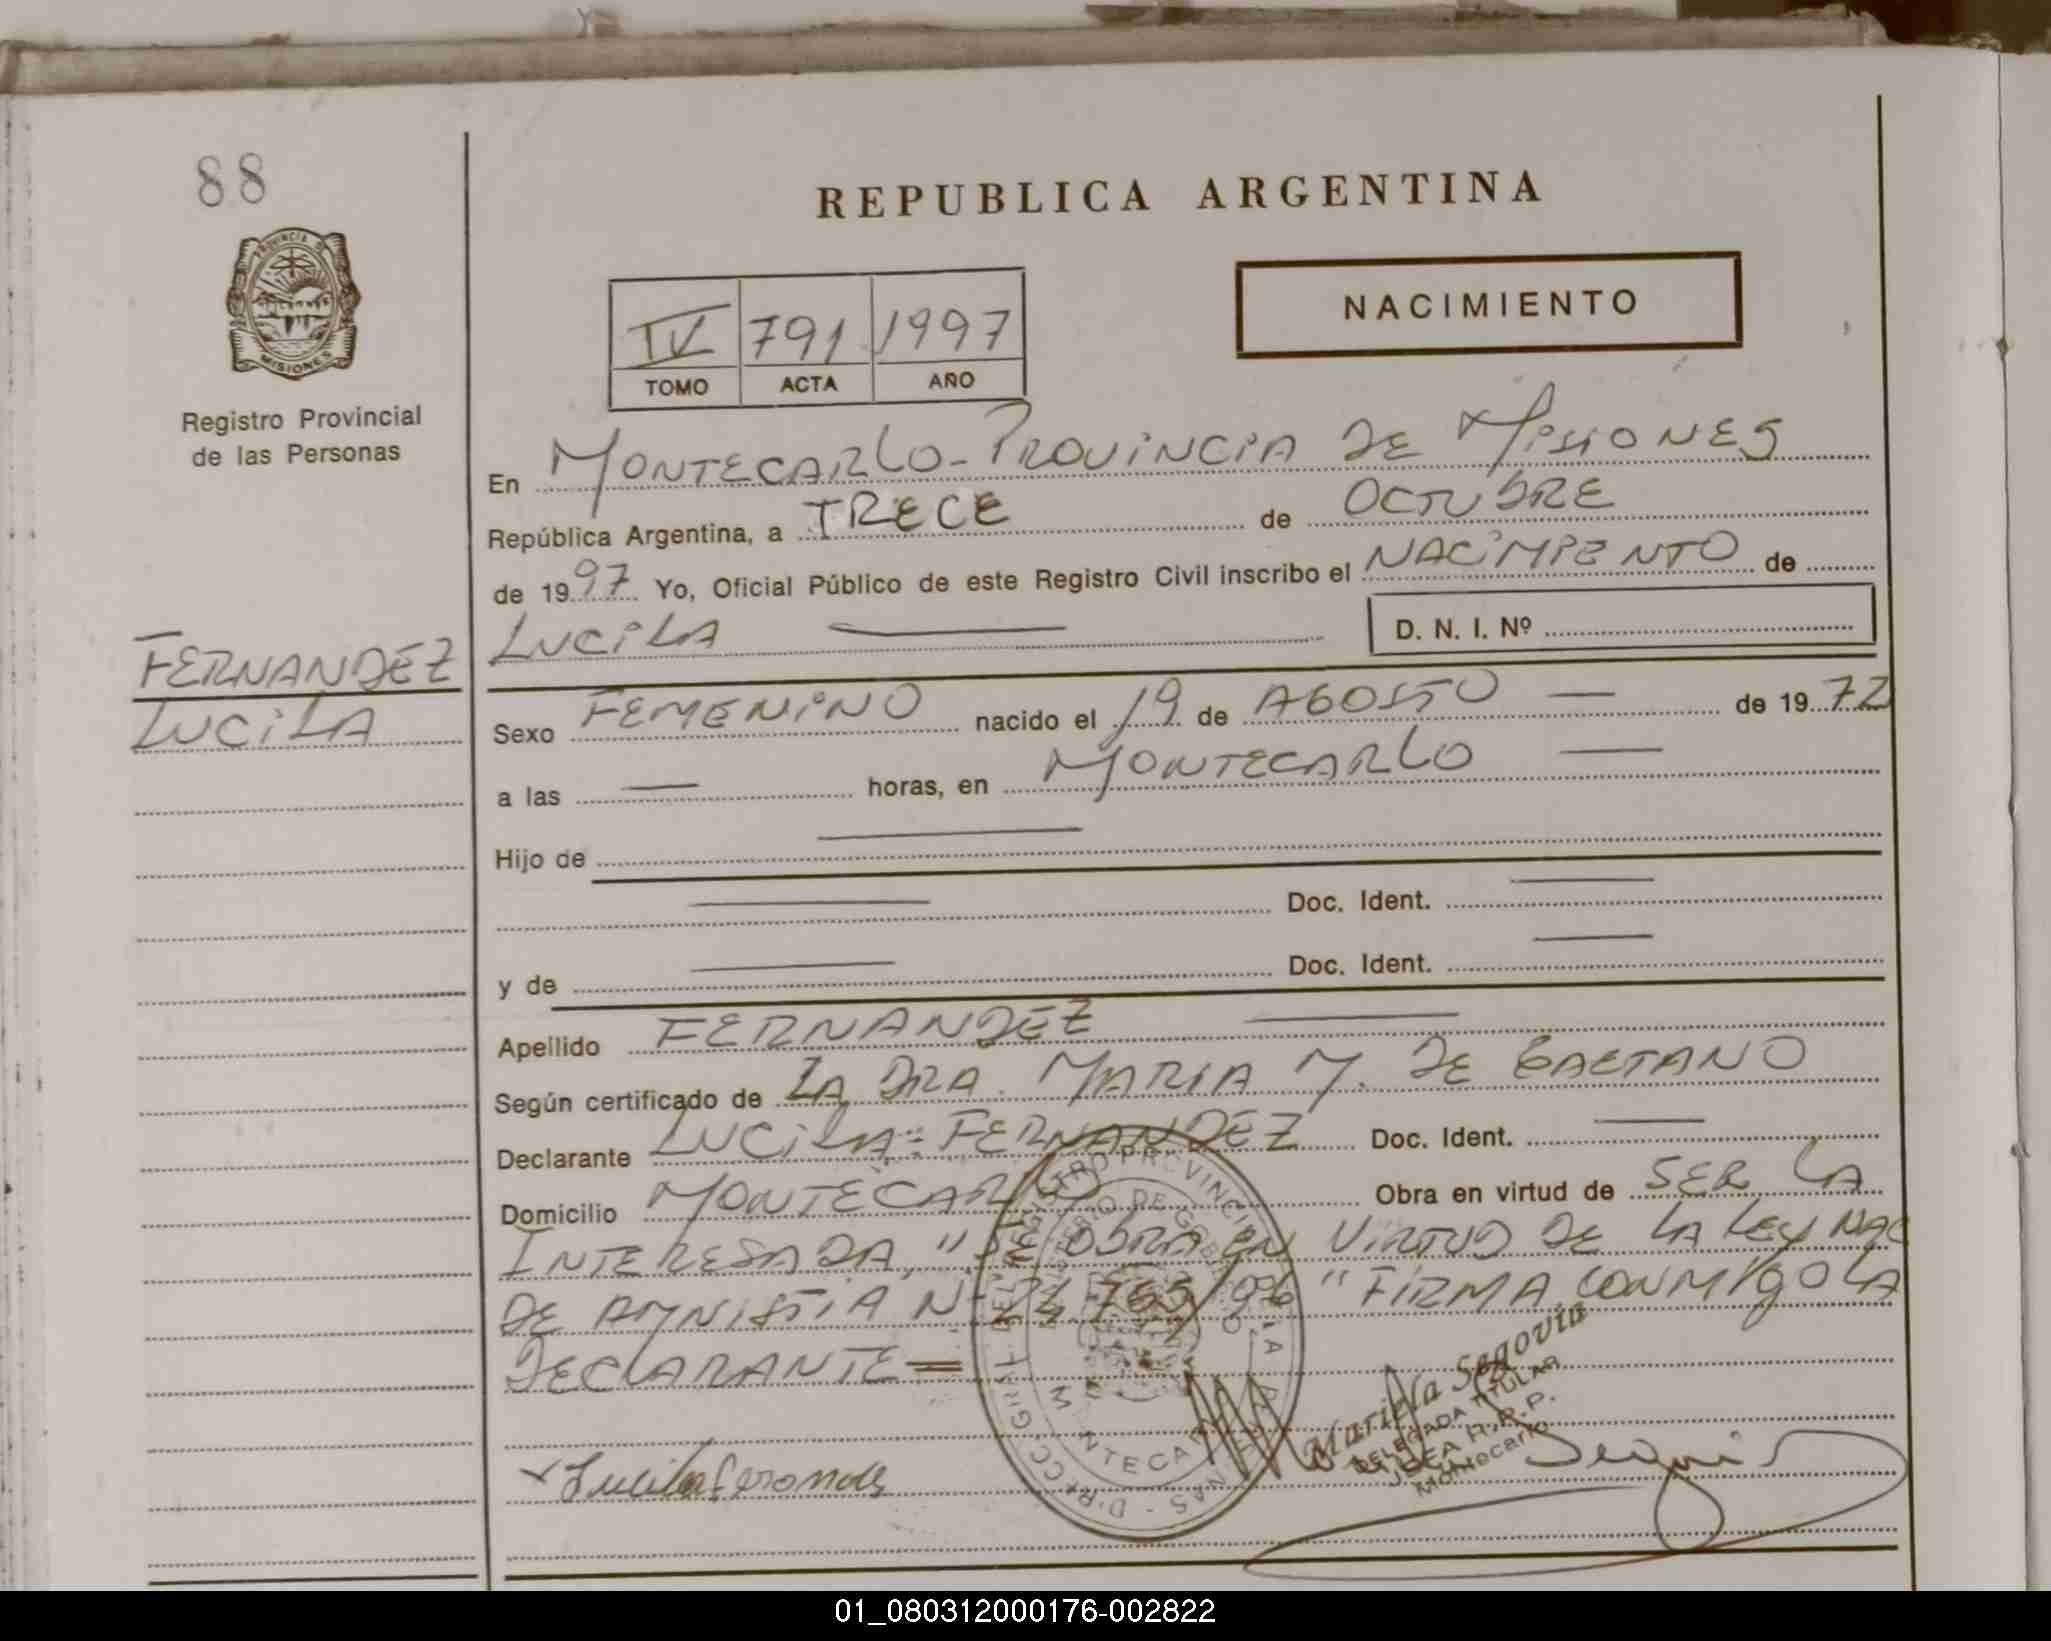 88
REPUBLICA ARGENTINA
PROVINCIA DE
MISIONES
NACIMIENTO
IV 791 1997
TOMO ACTA AÑO
Registro Provincial
de las Personas
En MONTECARLO - PROVINCIA DE MISIONES
República Argentina, a TRECE de OCTUBRE
de 1997 Yo, Oficial Público de este Registro Civil inscribo el NACIMIENTO de
LUCILA D. N. I. Nº
FERNANDEZ
LUCILA
Sexo FEMENINO nacido el 19 de AGOSTO — de 1972
a las — horas, en MONTECARLO —
Hijo de —
— Doc. Ident. —
y de — Doc. Ident. —
Apellido FERNANDEZ —
Según certificado de LA DRA. MARIA M. DE GAETANO
Declarante LUCILA FERNANDEZ Doc. Ident. —
Domicilio MONTECARLO Obra en virtud de SER LA
INTERESADA, "SE OBRA EN VIRTUD DE LA LEY NAC
DE AMNISTIA Nº 24.755/96 " FIRMA CONMIGO LA
DECLARANTE =
Mariela Segovia
DELEGADA TITULAR
R.P.P.
Montecarlo
Lucila fernandez
01_080312000176-002822